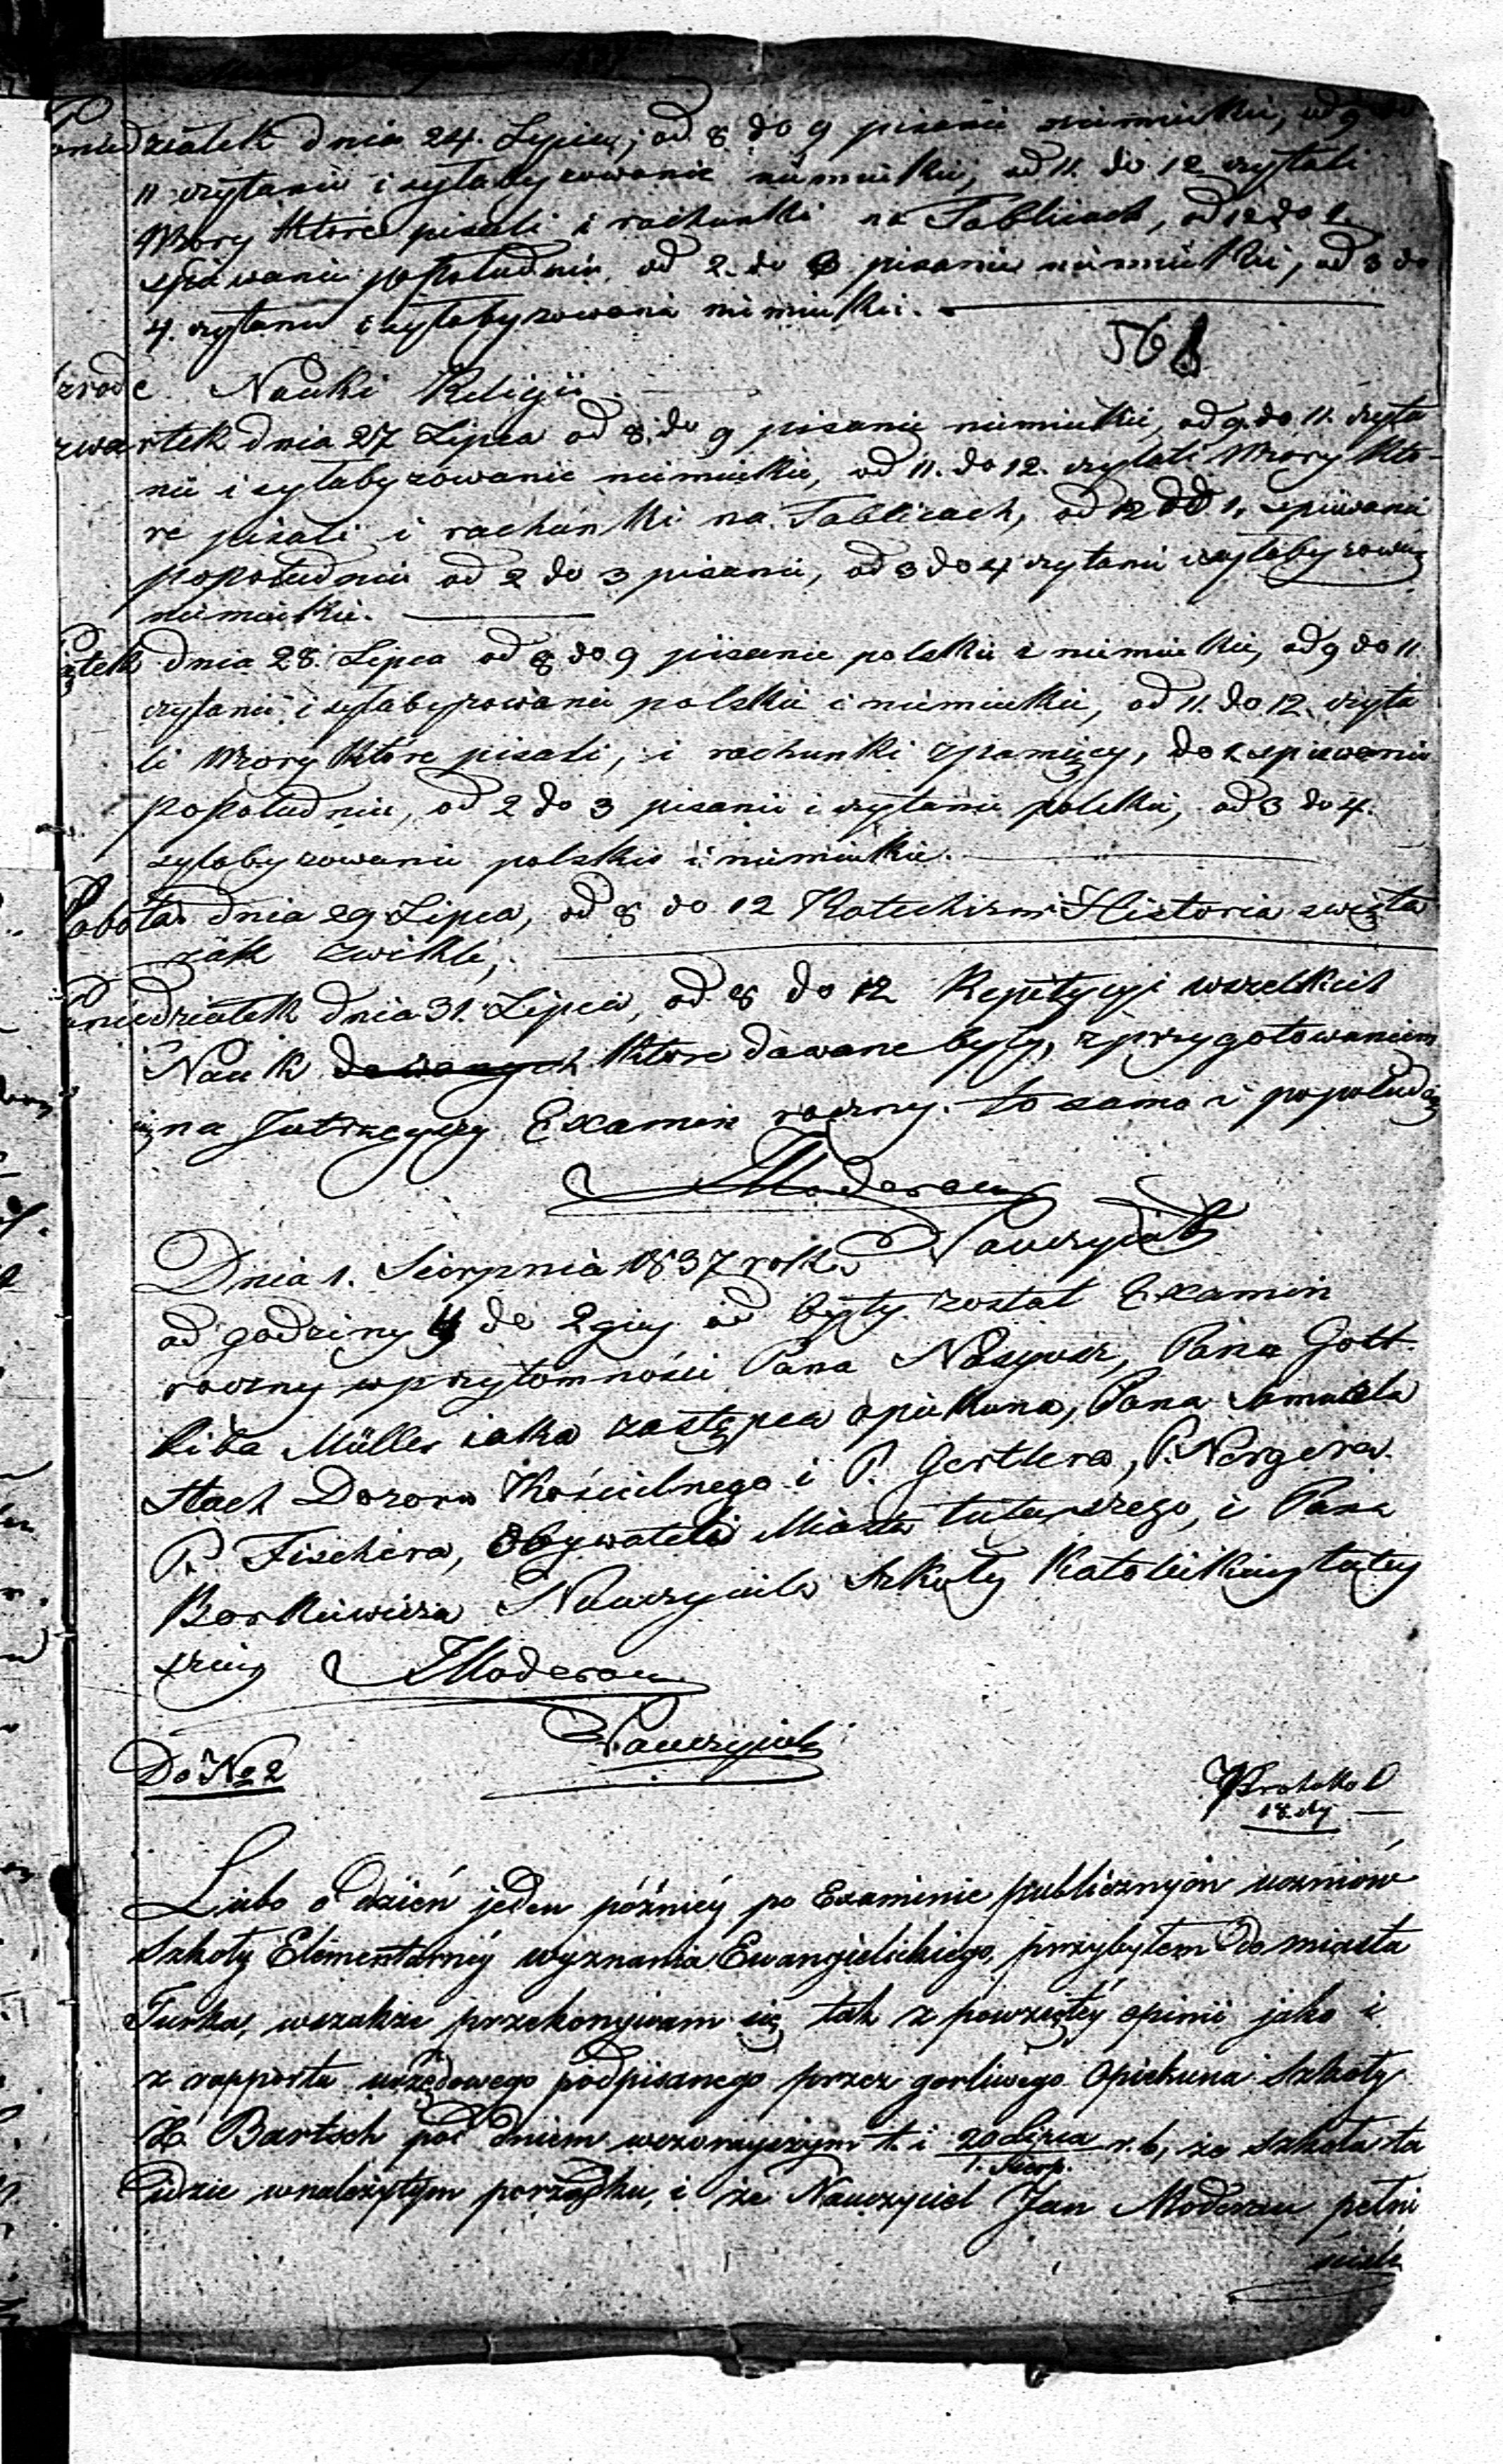 Poniedziałek dnia 24. Lypca, od 8 do 9 pisanie niemieckie, od 9 do
11 czytanie i sylabyzowanie niemieckie, od 11. do 12 czytali
Wzory które pisali i rachunki na Tablicach, od 12 do 1.
spiewanie popołudniu od 2. do 3 pisanie niemieckie, od 3 do
4. czytanie i sylabyzowanie niemieckie.
568
Szrode Nauki Religii.
czwartek dnia 27 Lipca od 8. do 9 pisanie niemieckie, od 9. do 11. czyta
nie i sylabyzowanie niemieckie, od 11. do 12. czytali Wzory Któ-
re pisali i rachunki na Tablicach, od 12 do 1. spiewanie
popołudniu od 2 do 3 pisanie, od 3 do 4 czytanie i sylabyzowanie
niemieckie.
Piątek dnia 28. Lipca od 8 do 9 pisanie polskie i niemieckie, od 9 do 11
czytanie i sylabyzowanie polskie i niemieckie, od 11. do 12. czyta
li Wzory Które pisali, i rachunki z pamięcy, do 1. spiewanie
popołudniu, od 2 do 3 pisanie i czytanie polskie, od 3 do 4.
sylabyzowanie polskie i niemieckie.
Sobota dnia 29 Lipca, od 8 do 12 Katechism Historia swięta
jak zwikle,
Poniedziałek dnia 31. Lipca, od 8 do 12 Repetycyi wszelkich
Nauk dawanych które dawane były, z przygotowaniem
się na Jutrzeyszy Examen roczny. to samo i popołudniu
JModerau
Nauczyciel
Dnia 1. Sierpnia 1837 roku
od godziny 4 do 2giey od byty został Examin
roczny w przytomności Pana Pana Gott-
liba Müller iako zastępca opiekuna, Pana Samuela
Stach Dozoru Kościelnego i P. Gertlera, P. Nergera.
P. Fischera, Obywateli Miasta tutejszego, i Pana
Borkiewicza Nauczyciela Szkoły Katolickiey tutey
szey JModerau
Nauczyciel
Do No 2
Protokoł
Lubo o dzień jeden późniéy po Examinie publicznym uczniów
Szkoły Elementarnéy wyznania Ewangielickiego, przybyłem do miasta
Turka, wszakże przekonywam się tak z powziętéy opinii jako i
z rapportu urzędowego podpisanego przez gorliwego Opiekuna Szkoły
Bartsch pod dniem wczorayszym t. i 20 Lipca / 1. Sierp. r. b, że Szkoła ta
idzie w należytym porządku, i że Nauczyciel Jan Moderau pełni